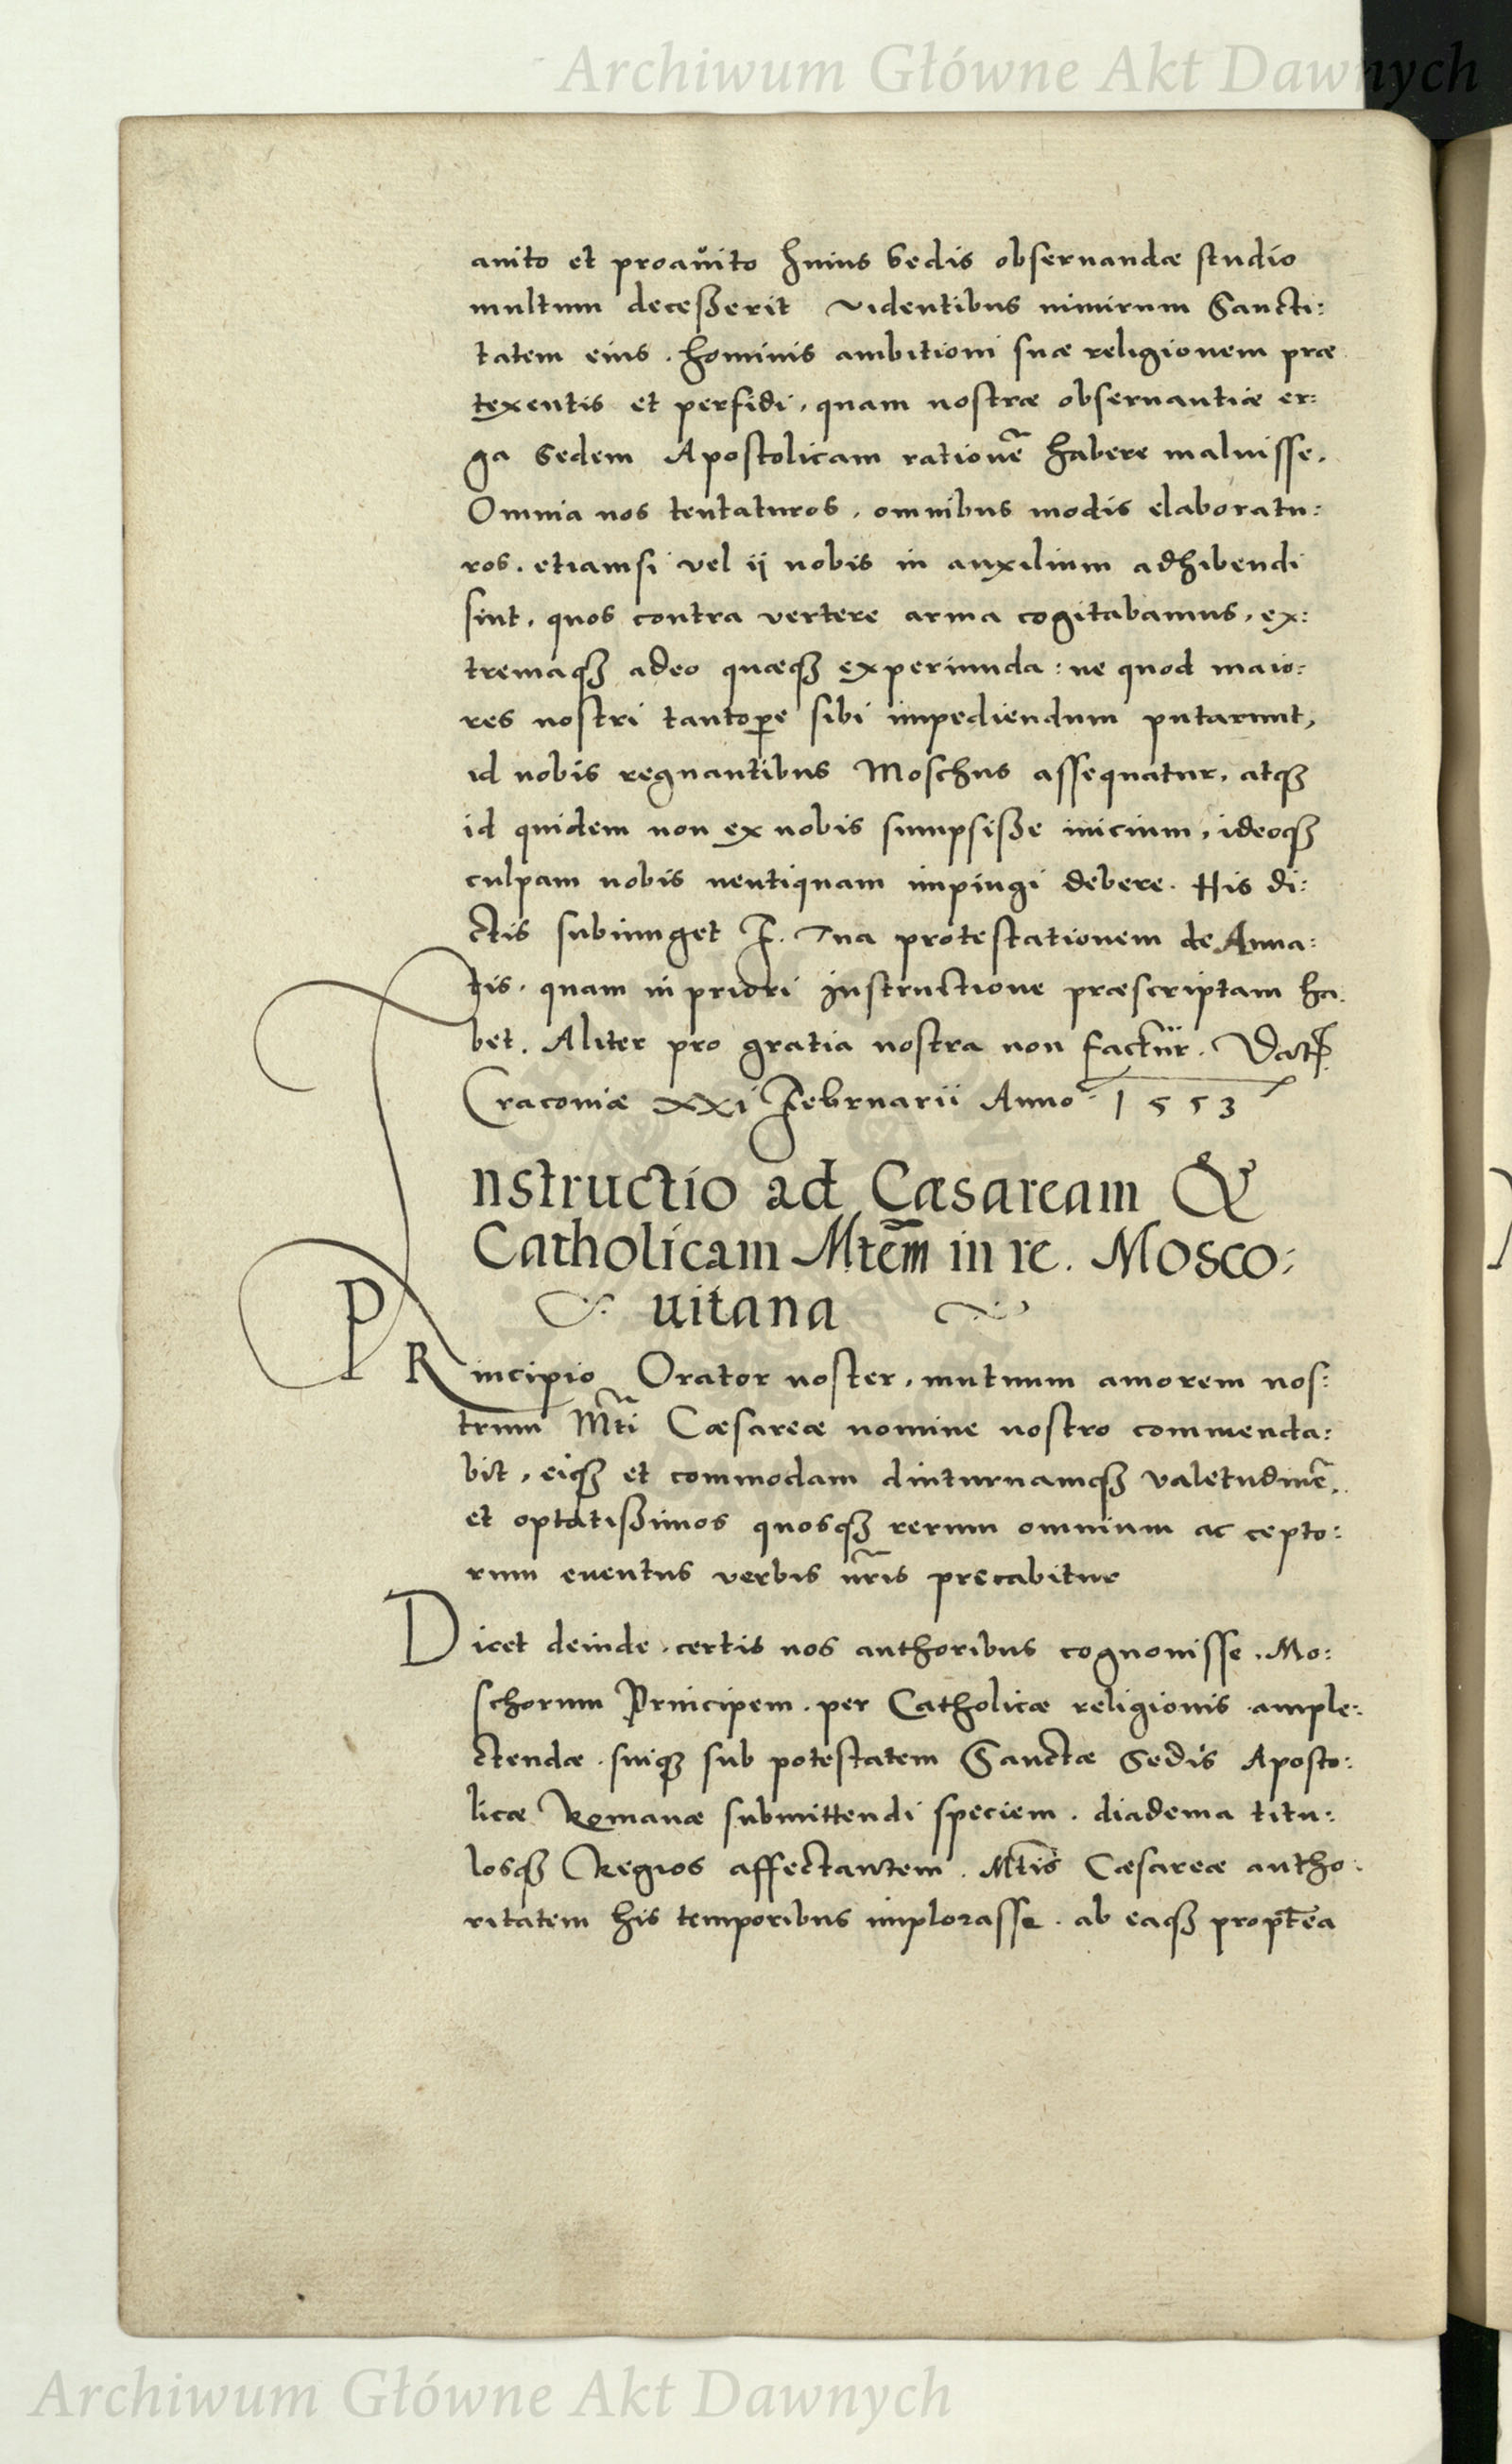 Archiwum Główne Akt Dawnych
auito et proauito huius Sedis obseruandæ studio
multum deceßerit videntibus nimirum Sancti:
tatem eius. hominis ambitioni suæ religionem præ
texentis et perfidi, quam nostræ obseruantiæ er:
ga Sedem Apostolicam rationẽ habere maluisse.
Omnia nos tentaturos, omnibus modis elaboratu:
ros. etiamsi vel ij nobis in auxilium adhibendi
sint, quos contra vertere arma cogitabamus, ex:
tremaqꝫ adeo quæqꝫ experiunda: ne quod maio:
res nostri tantoꝑe sibi impediendum putarunt,
id nobis regnantibus Moschus assequatur, atqꝫ
id quidem non ex nobis sumpsiße inicium, ideoqꝫ
culpam nobis neutiquam impingi debere. His di:
ctis subiunget F. Tua protestationem de Anna:
tis. quam in priori instructione præscriptam ha.
bet. Aliter pro gratia nostra non factur̃. Dat̃.
Cracouiæ xxi Februarii Anno 1553
Instructio ad Cæsaream &
Catholicam Mtẽm in re. Mosco:
uitana
PRincipio Orator noster, mutuum amorem nos:
trum Mt̃i Cæsareæ nomine nostro commenda:
bit, eiqꝫ et commodam diuturnamqꝫ valetudinẽ,
et optatißimos quosqꝫ rerum omnium ac cepto:
rum euentus verbis nr̃is precabitur
Dicet deinde. certis nos authoribus cognouisse. Mo:
schorum Principem. per Catholicæ religionis ample:
ctendæ. suiqꝫ sub potestatem Sanctæ Sedis Aposto:
licæ Romanæ submittendi speciem. diadema titu:
losqꝫ Regios affectantem. Mt̃is Cæsareæ autho.
ritatem his temporibus implorasse. ab eaqꝫ propt̃ea
Archiwum Główne Akt Dawnych